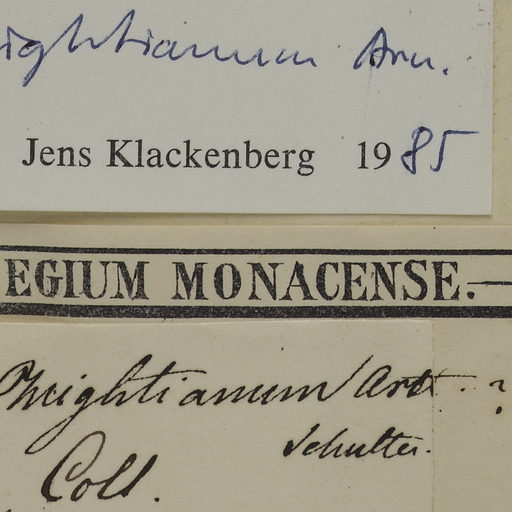 ightianum Arn.
Jens Klackenberg 1985
EGIUM MONACENSE.—
Wightianum Arn. ?
Schultes.
Coll.